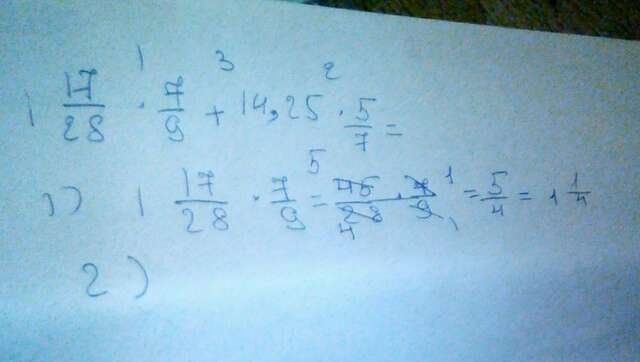 1 3 2
1 17/28 · 7/9 + 14,25 · 5/7 =
1) 1 17/28 · 7/9 = 45/28 · 7/9 = 5/4 = 1 1/4
5 1 4 1
2)